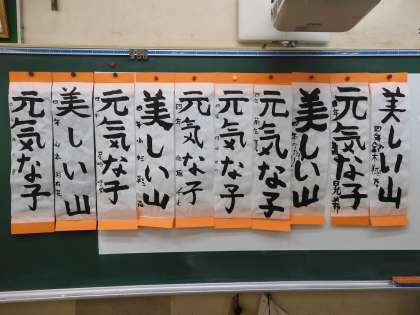 美しい山
元気な子
美しい山
元気な子
元気な子
元気な子
美しい山
元気な子
美しい山
元気な子